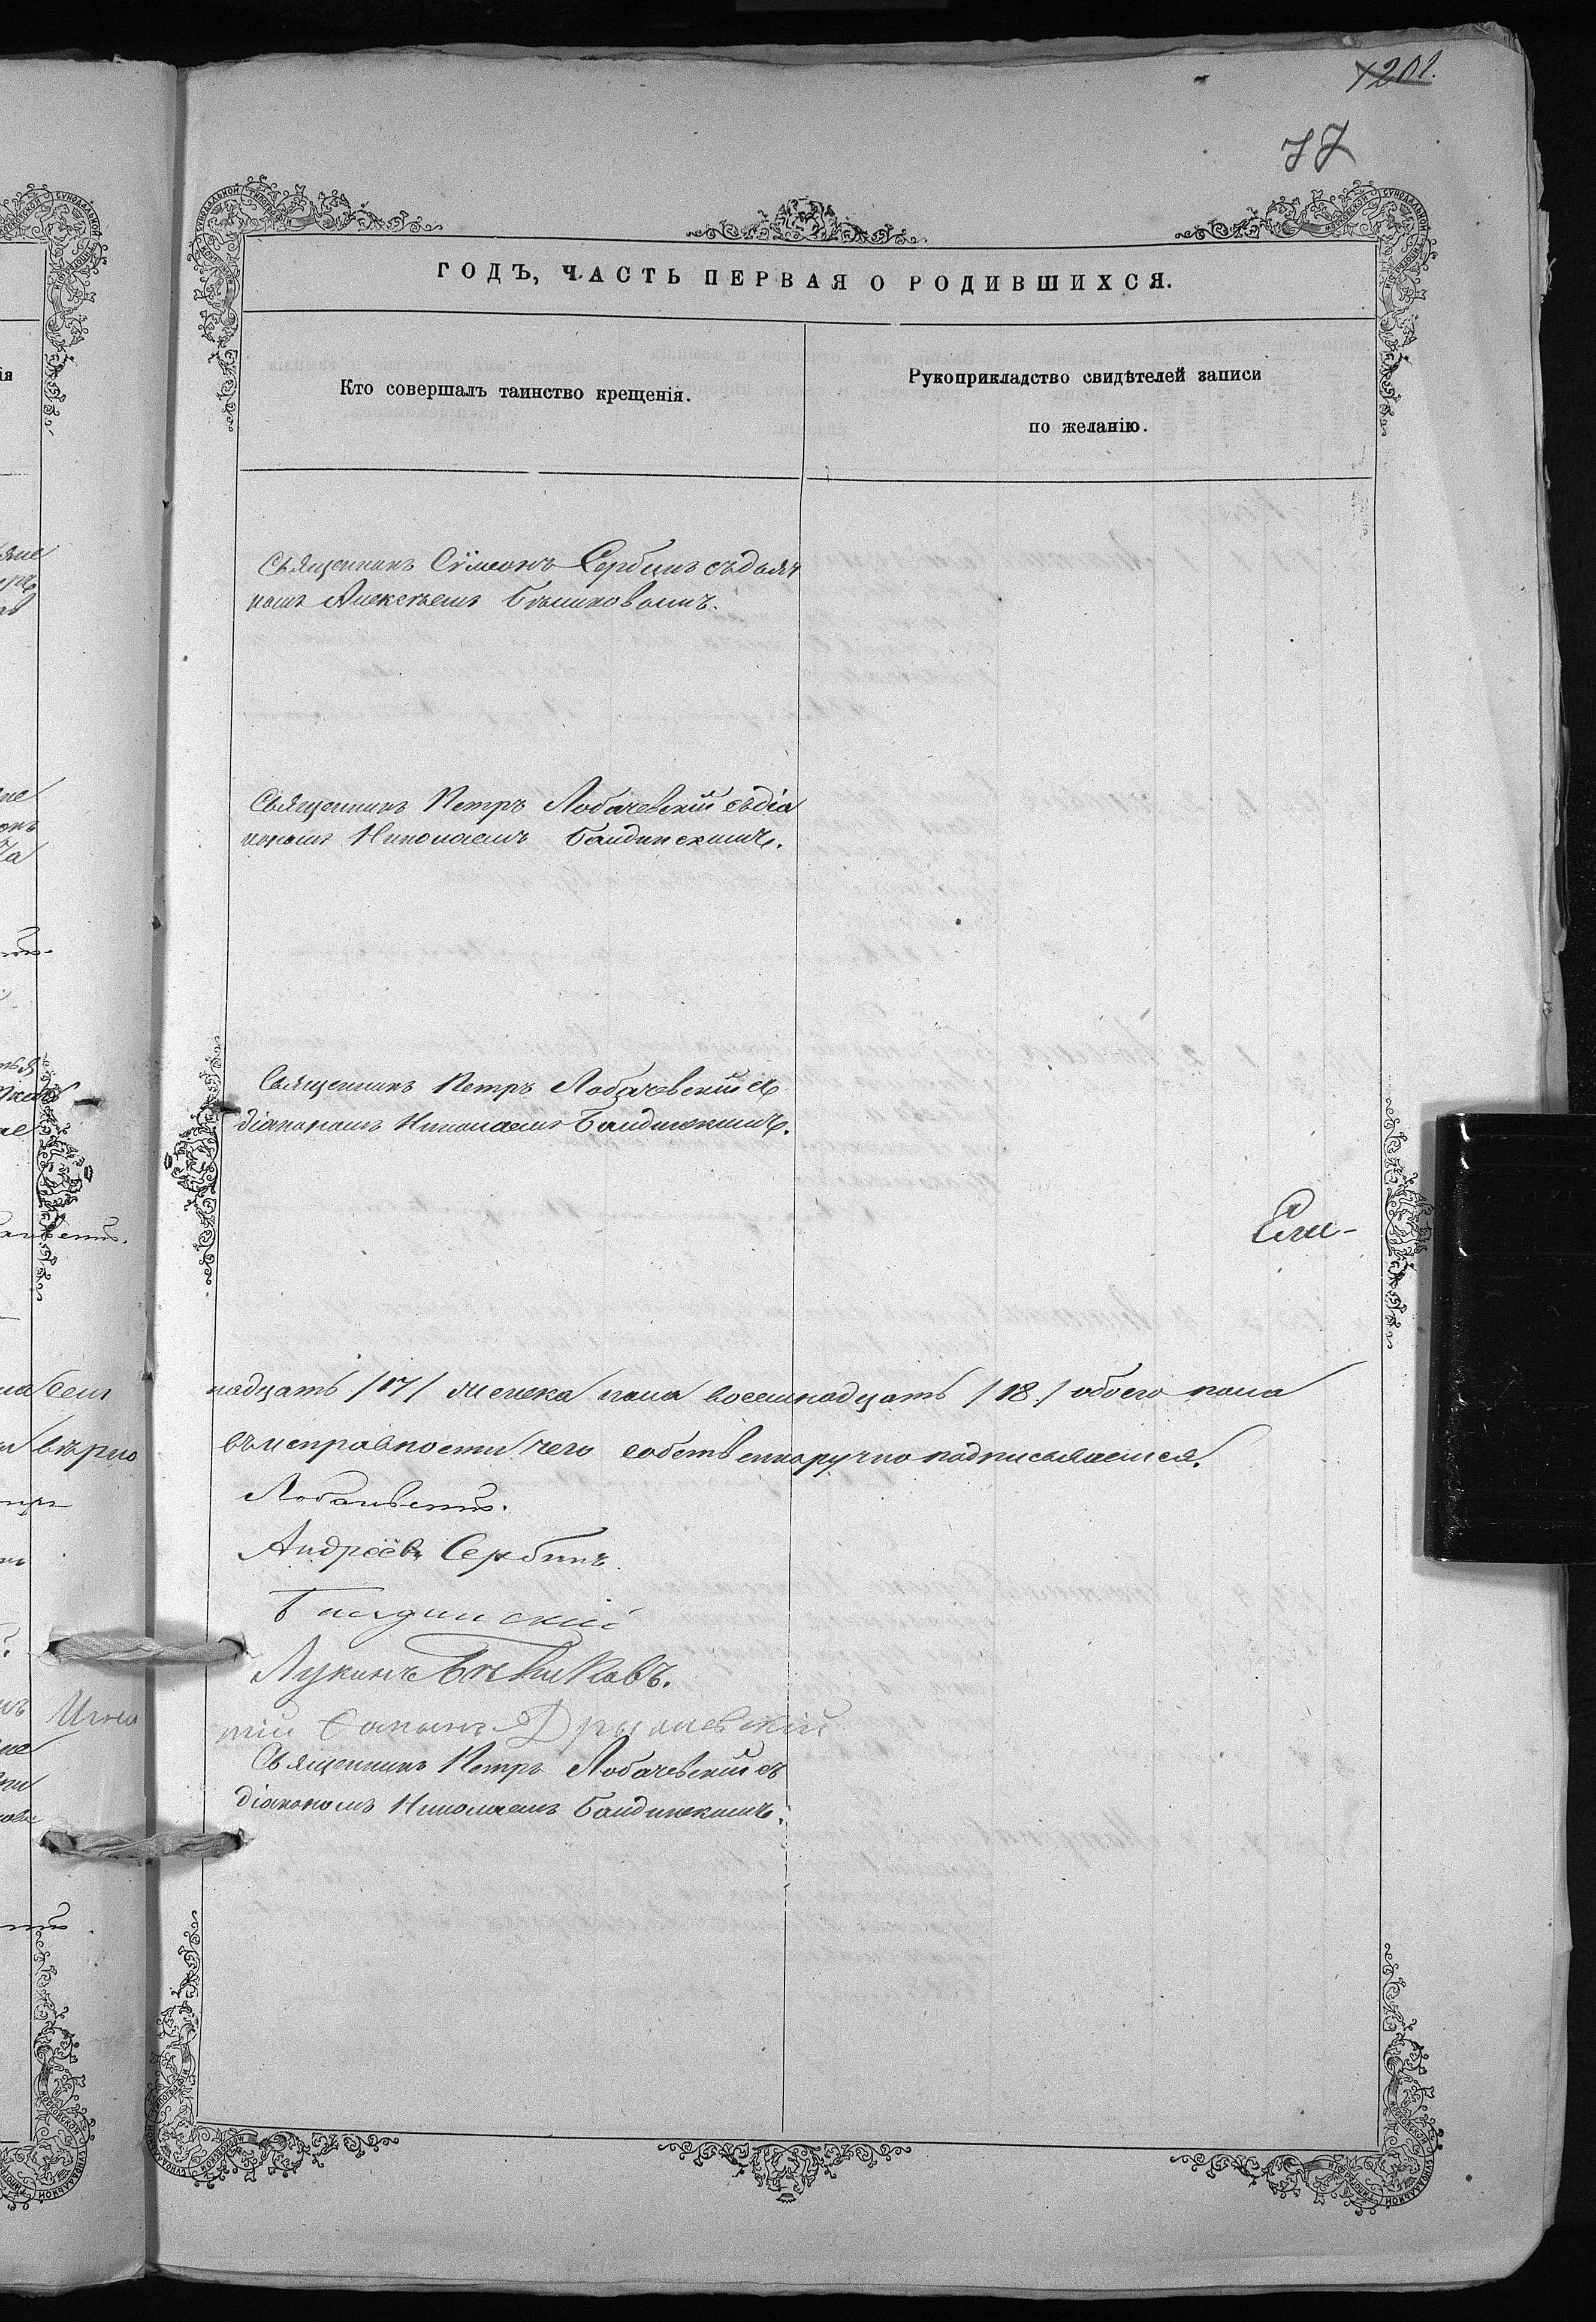 201.
77
ГОДЪ, ЧАСТЬ ПЕРВАЯ О РОДИВШИХСЯ.
Кто совершалъ таинство крещенія.
Рукоприкладство свидѣтелей записи
по желанію.
Священникъ Сѵмеонъ Сербинъ съ діако
номъ Алексѣемъ Бѣликовымъ.
Священникъ Петръ Лобачевскій съ діа
кономъ Николаемъ Баидинскимъ.
Священникъ Петръ Лобачевскій съ
діакономъ Николаемъ Баидинскимъ.
надцать /17/ женска пола восемнадцать /18/ обоего пола
въ исправности чего собственноручно подписываемся.
Лобачевскій.
Андреевъ Сербинъ.
Баидинскій
Лукинъ Бѣликовъ.
Священникъ Петръ Лобачевскій съ
діакономъ Николаемъ Баидинскимъ.